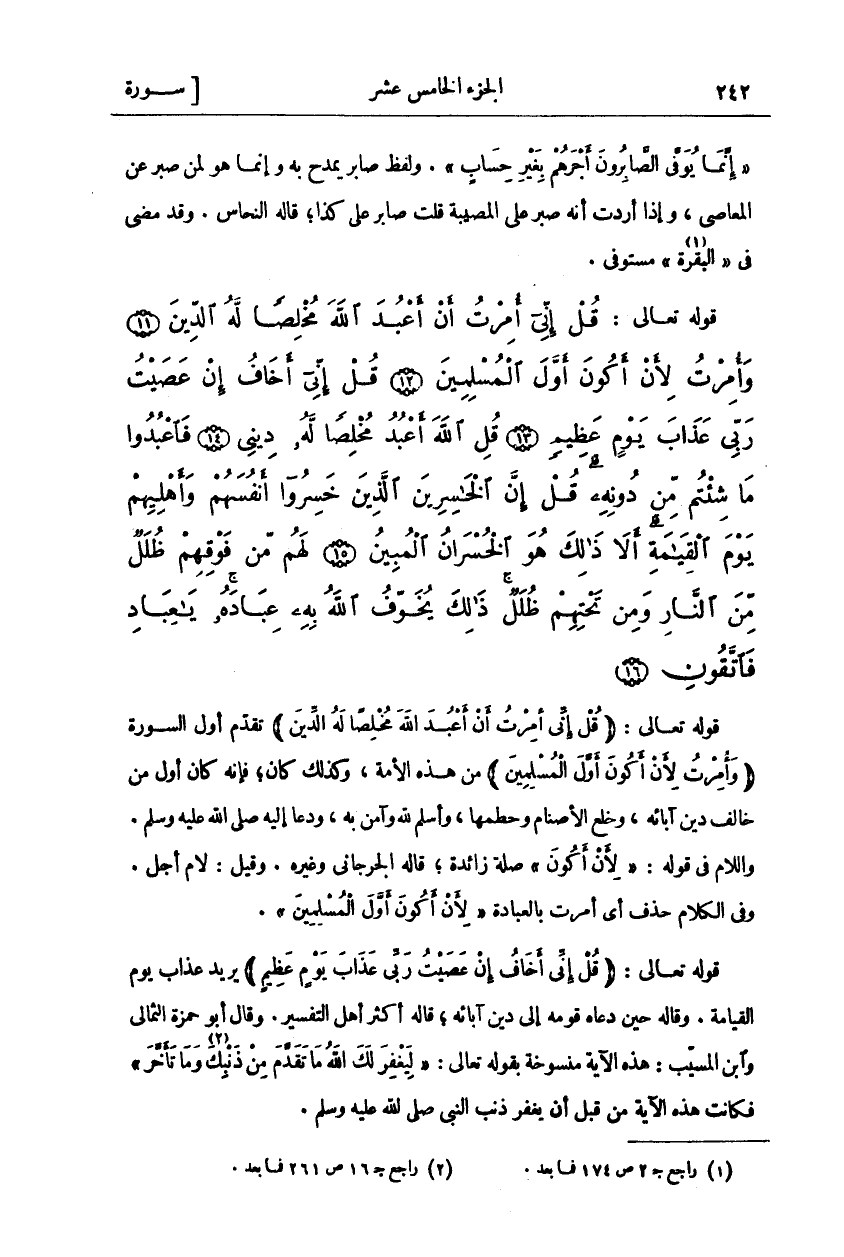 ٢٤٢ الجزء الخامس عشر [ ســورة
« إِنَّمَا يُوَفَّى الصَّابِرُونَ أَجْرَهُمْ بِغَيْرِ حِسَابٍ » . ولفظ صابر يمدح به و إنما هو لمن صبر عن
المعاصى ، و إذا أردت أنه صبر على المصيبة قلت صابر على كذا؛ قاله النحاس . وقد مضى
فى « البقرة(١) » مستوفى .
قوله تعـالى : قُلْ إِنِّىٓ أُمِرْتُ أَنْ أَعْبُدَ ٱللَّهَ مُخْلِصًا لَّهُ ٱلدِّينَ ﴿١١﴾
وَأُمِرْتُ لِأَنْ أَكُونَ أَوَّلَ ٱلْمُسْلِمِينَ ﴿١٢﴾ قُلْ إِنِّىٓ أَخَافُ إِنْ عَصَيْتُ
رَبِّى عَذَابَ يَوْمٍ عَظِيمٍ ﴿١٣﴾ قُلِ ٱللَّهَ أَعْبُدُ مُخْلِصًا لَّهُۥ دِينِى ﴿١٤﴾ فَٱعْبُدُوا
مَا شِئْتُم مِّن دُونِهِۦ ۗ قُلْ إِنَّ ٱلْخَٰسِرِينَ ٱلَّذِينَ خَسِرُوٓا أَنفُسَهُمْ وَأَهْلِيهِمْ
يَوْمَ ٱلْقِيَٰمَةِ ۗ أَلَا ذَٰلِكَ هُوَ ٱلْخُسْرَانُ ٱلْمُبِينُ ﴿١٥﴾ لَهُم مِّن فَوْقِهِمْ ظُلَلٌ
مِّنَ ٱلنَّارِ وَمِن تَحْتِهِمْ ظُلَلٌ ۚ ذَٰلِكَ يُخَوِّفُ ٱللَّهُ بِهِۦ عِبَادَهُۥ ۚ يَٰعِبَادِ
فَٱتَّقُونِ ﴿١٦﴾
قوله تعـالى : ﴿ قُلْ إِنِّى أُمِرْتُ أَنْ أَعْبُـدَ اللهَ مُخْلِصًا لَهُ الدِّينَ ﴾ تقدّم أول السـورة
﴿ وَأُمِرْتُ لِأَنْ أَكُونَ أَوَّلَ الْمُسْلِمِينَ ﴾ من هـذه الأمة ، وكذلك كان؛ فإنه كان أول من
خالف دين آبائه ، وخلع الأصنام وحطمها ، وأسلم لله وآمن به ، ودعا إليه صلى الله عليه وسلم .
واللام فى قوله : « لِأَنْ أَكُونَ » صلة زائدة ؛ قاله الجرجانى وغيره . وقيل : لام أجل .
وفى الكلام حذف أى أمرت بالعبادة « لِأَنْ أَكُونَ أَوَّلَ الْمُسْلِمِينَ » .
قوله تعـالى : ﴿ قُلْ إِنِّى أَخَافُ إِنْ عَصَيْتُ رَبِّى عَذَابَ يَوْمٍ عَظِيمٍ ﴾ يريد عذاب يوم
القيامة . وقاله حين دعاه قومه إلى دين آبائه ؛ قاله أكثر أهل التفسير . وقال أبو حمزة الثمالى
وآبن المسيّب : هذه الآية منسوخة بقوله تعالى : « لِيَغْفِرَ لَكَ اللهُ مَا تَقَدَّمَ مِنْ ذَنْبِكَ(٢) وَمَا تَأَخَّرَ »
فكانت هذه الآية من قبل أن يغفر ذنب النبى صلى لله عليه وسلم .
(١) راجع جـ ٢ ص ١٧٤ فما بعد . (٢) راجع جـ ١٦ ص ٢٦١ فما بعد .